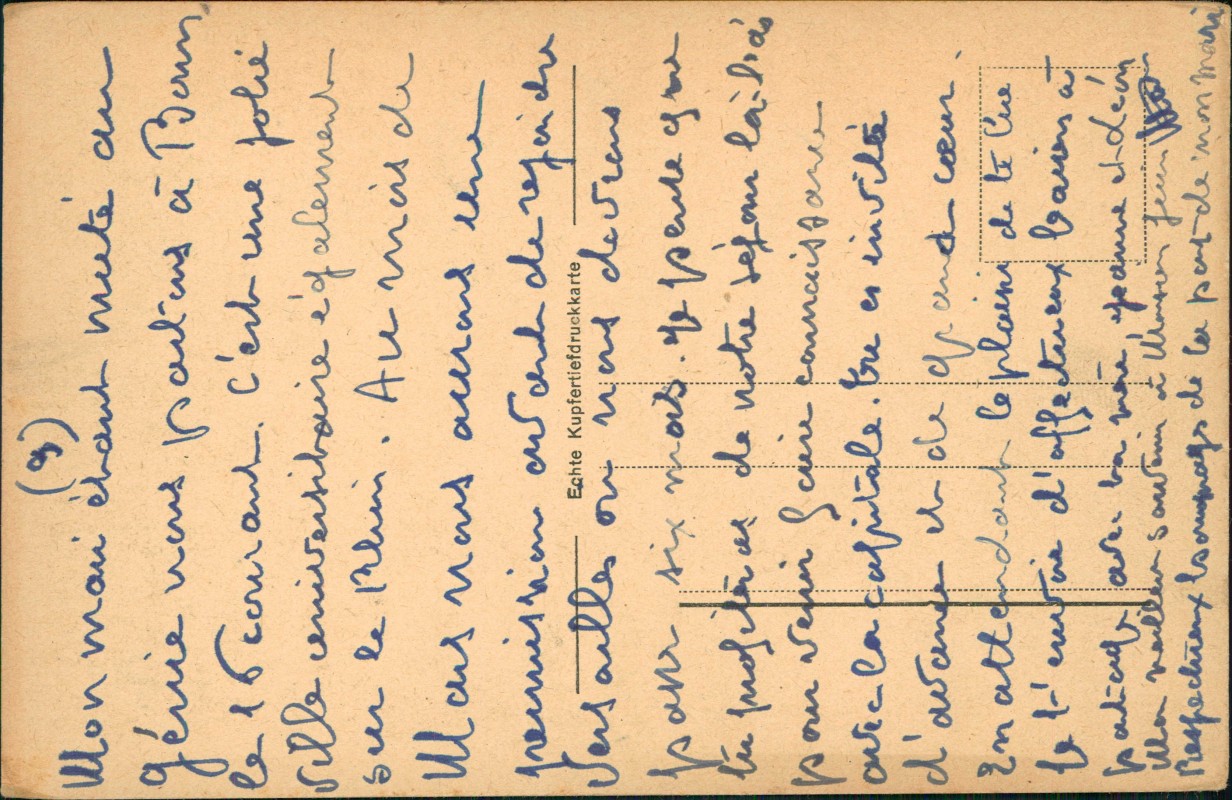 (3)
Mon mari étant muté au
génie nous partons à Bonn
le 15 courant. C'est une jolie
ville universitaire également
sur le Rhin. Au mois de
Mars nous aurons une
permission avant de rejoindre
Versailles où nous devrons
Echte Kupfertiefdruckkarte
passer six mois. Je pense que
tu profiteras de notre séjour là-bas
pour venir faire connaissance
avec la capitale. Tu es invitée
d'avance et de grand cœur.
En attendant le plaisir de te lire
je t'envoie d'affectueux baisers à
partager avec ta mère, Yvonne et Léon
Mon meilleur souvenir à Monsieur
Respectueux hommages de la part de mon mari